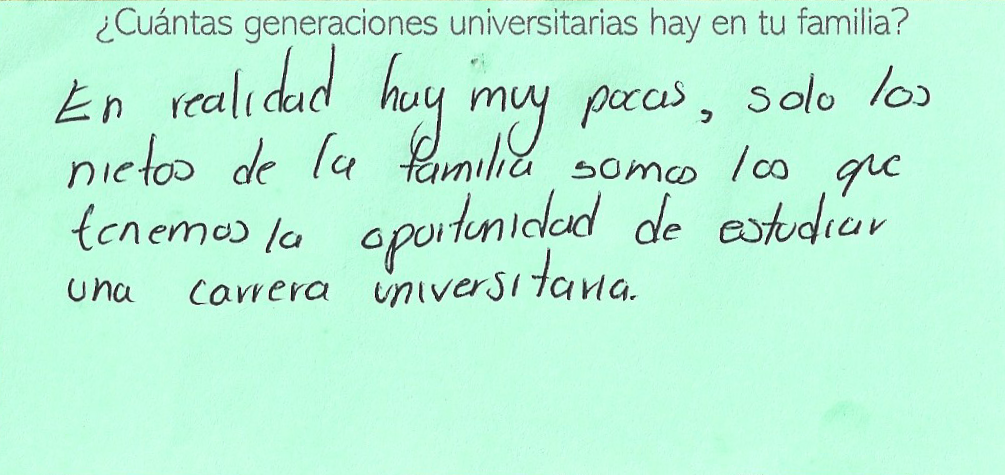 ¿Cuántas generaciones universitarias hay en tu familia?
En realidad hay muy pocas, solo los
nietos de la familia somos los que
tenemos la oportunidad de estudiar
una carrera universitaria.